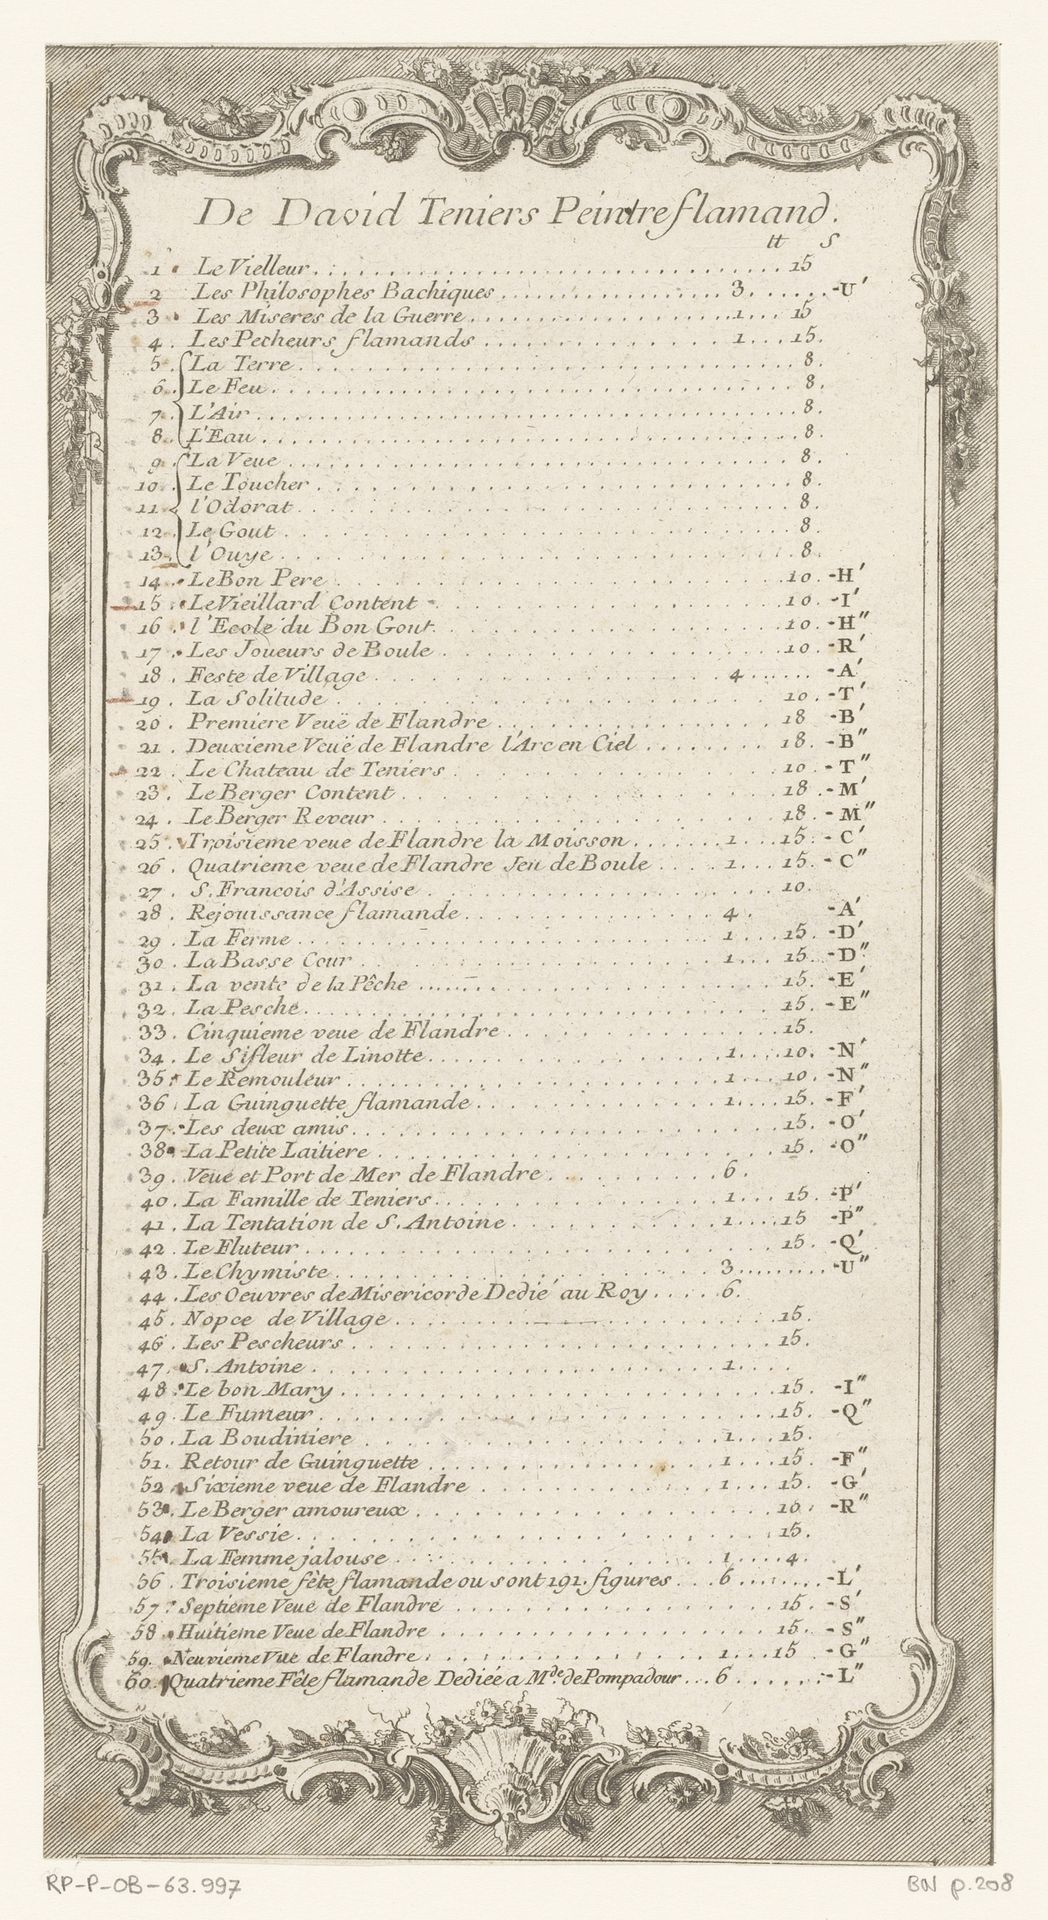 De David Teniers Peintre flamand.
tt S
1. Le Vielleur. 15
2. Les Philosophes Bachiques 3. -U'
3. Les Miseres de la Guerre. 1. 15
4. Les Pecheurs flamands 1. 15.
5. La Terre. 8.
6. Le Feu. 8.
7. L'Air. 8.
8. L'Eau. 8.
9. La Veue 8.
10. Le Toucher. 8.
11. l'Odorat. 8.
12. Le Gout 8.
13. l'Ouye. 8.
14. Le Bon Pere 10. -H'
15. Le Vieillard Content 10. -I'
16. l'Ecole du Bon Gout. 10. -H"
17. Les Joueurs de Boule 10. -R'
18. Feste de Village 4 -A'
19. La Solitude 10. -T'
20. Premiere Veuë de Flandre 18 -B'
21. Deuxieme Veuë de Flandre l'Arc en Ciel 18. -B"
22. Le Chateau de Teniers 10. -T"
23. Le Berger Content 18. -M'
24. Le Berger Reveur 18. -M"
25. Troisieme veue de Flandre la Moisson 1. 15. -C'
26. Quatrieme veue de Flandre Jeu de Boule 1. 15. -C"
27. S. Francois d'Assise 10.
28. Rejouissance flamande 4. -A'
29. La Ferme 1. 15. -D'
30. La Basse Cour 1. 15. -D"
31. La vente de la Pêche 15. -E'
32. La Pesche 15. -E"
33. Cinquieme veue de Flandre 15.
34. Le Sifleur de Linotte 1. 10. -N'
35. Le Remouleur 1. 10. -N"
36. La Guinguette flamande 1. 15. -F'
37. Les deux amis 15. -O'
38. La Petite Laitiere 15. -O"
39. Veue et Port de Mer de Flandre 6.
40. La Famille de Teniers 1. 15. -P'
41. La Tentation de S. Antoine 1. 15 -P"
42. Le Fluteur 15. -Q'
43. Le Chymiste 3 -U"
44. Les Oeuvres de Misericorde Dedié au Roy 6.
45. Nopce de Village 15.
46. Les Pescheurs 15.
47. S. Antoine 1.
48. Le bon Mary 15. -I"
49. Le Fumeur 15. -Q"
50. La Boudiniere 1. 15.
51. Retour de Guinguette 1. 15. -F"
52. Sixieme veue de Flandre 1. 15. -G'
53. Le Berger amoureux 10. -R"
54. La Vessie 15.
55. La Femme jalouse 1. 4.
56. Troisieme fête flamande ou sont 191. figures 6 -L'
57. Septieme Veue de Flandre 15. -S'
58. Huitieme Veue de Flandre 15. -S"
59. Neuvieme Vue de Flandre 1. 15 -G"
60. Quatrieme Fête flamande Dediée a Mde. de Pompadour 6 -L"
RP-P-OB-63.997 BN p.208